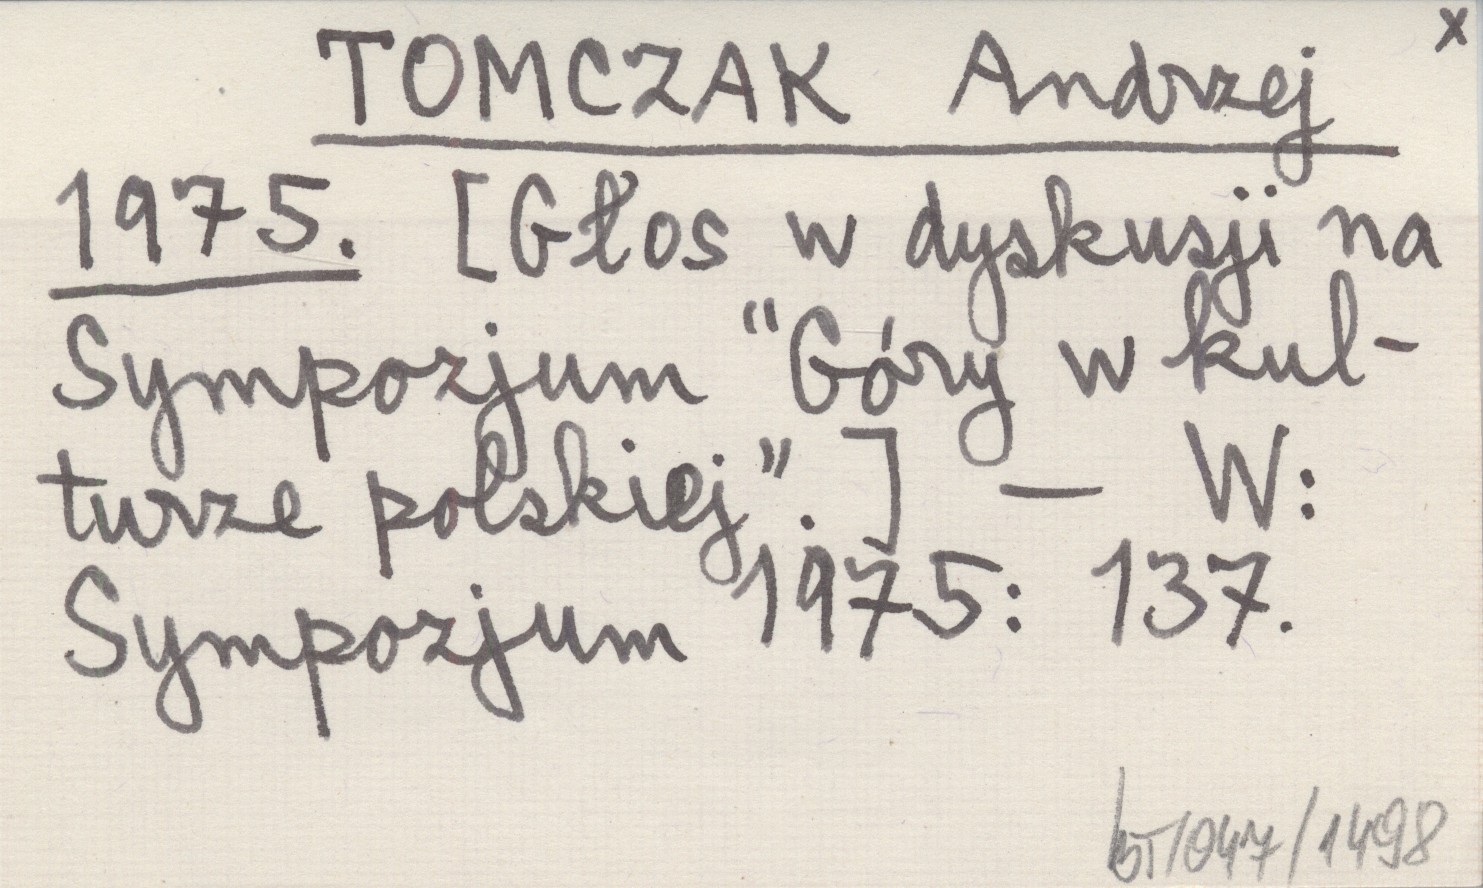 x
TOMCZAK Andrzej
1975. [Głos w dyskusji na
Sympozjum "Góry w kul-
turze polskiej".] — W:
Sympozjum 1975: 137.
/047/1498